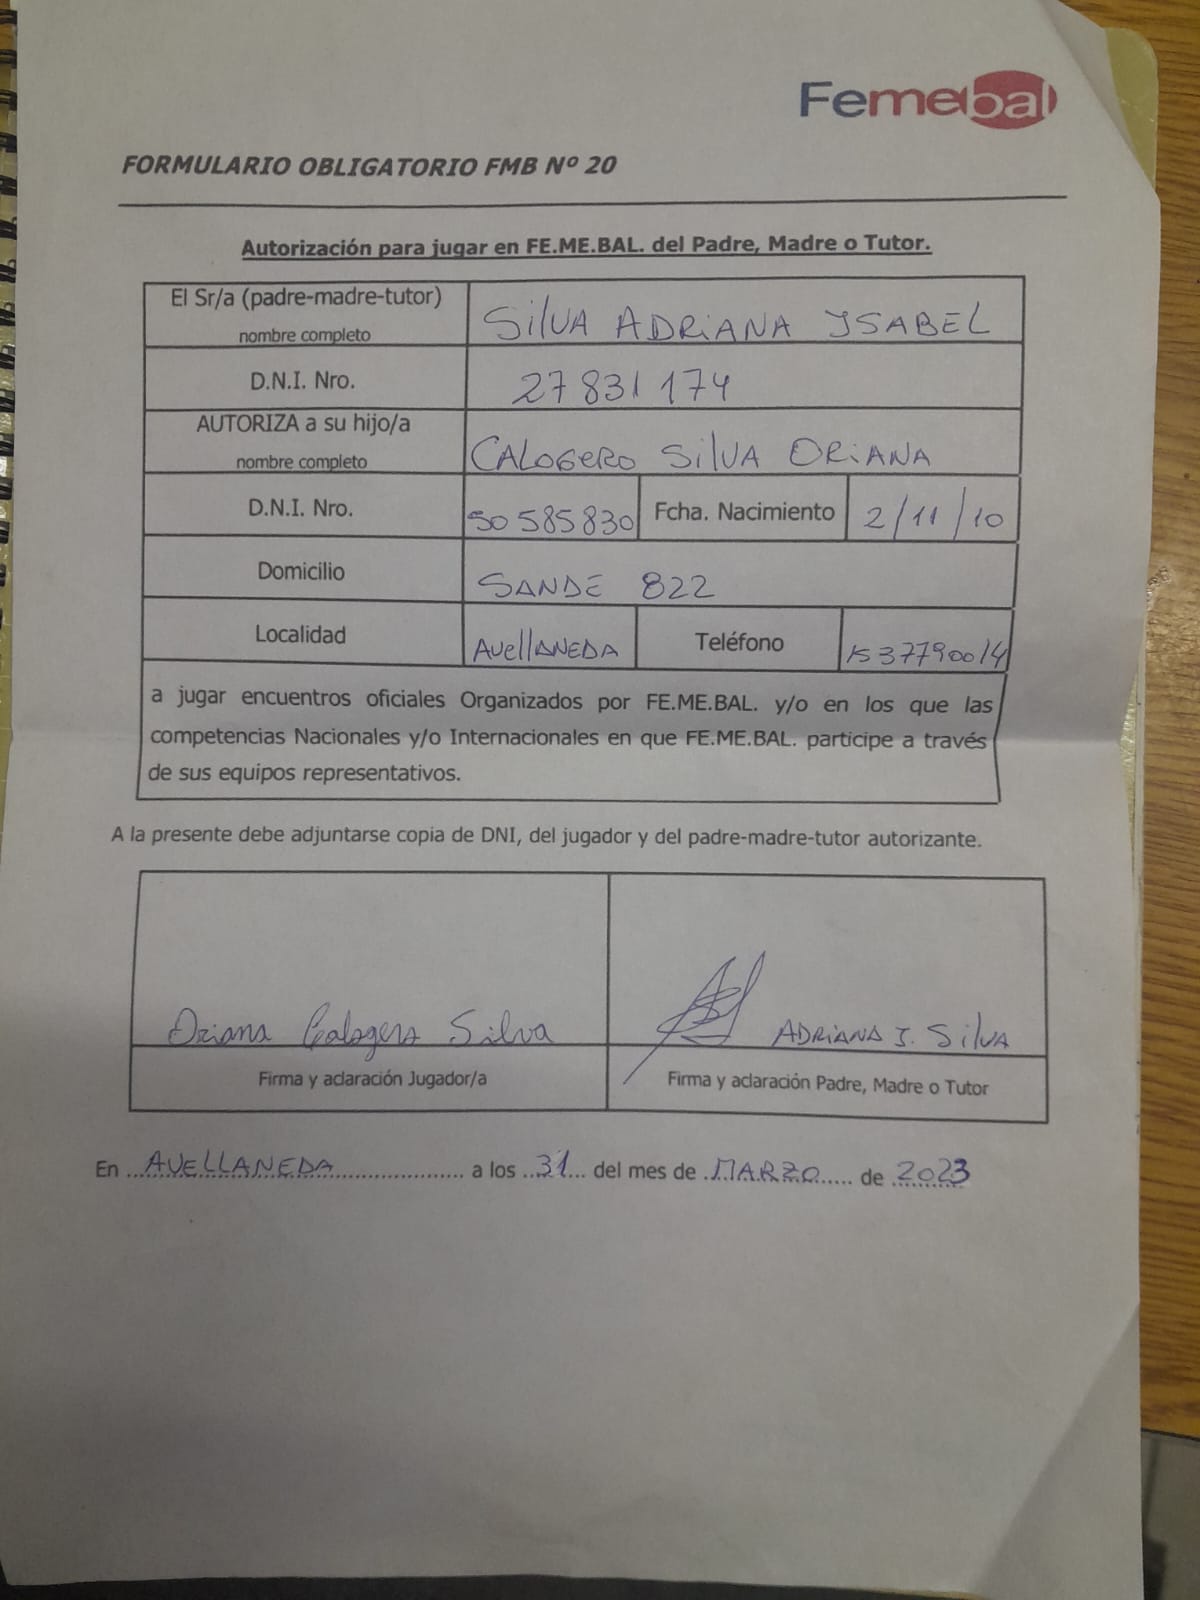 Femebal
FORMULARIO OBLIGATORIO FMB Nº 20
Autorización para jugar en FE.ME.BAL. del Padre, Madre o Tutor.
El Sr/a (padre-madre-tutor)
nombre completo
SilVA ADRiANA YSABEL
D.N.I. Nro.
27 831 174
AUTORIZA a su hijo/a
nombre completo
CALOGERO SilVA ORiANA
D.N.I. Nro.
50 585 830
Fcha. Nacimiento
2/11/10
Domicilio
SANDE 822
Localidad
AvellANEDA
Teléfono
1537790014
a jugar encuentros oficiales Organizados por FE.ME.BAL. y/o en los que las
competencias Nacionales y/o Internacionales en que FE.ME.BAL. participe a través
de sus equipos representativos.
A la presente debe adjuntarse copia de DNI, del jugador y del padre-madre-tutor autorizante.
Oriana Calogero Silva
ADRiANA I. SilVA
Firma y aclaración Jugador/a
Firma y aclaración Padre, Madre o Tutor
En ...AVELLANEDA.................... a los ..31... del mes de .MARZO..... de 2023